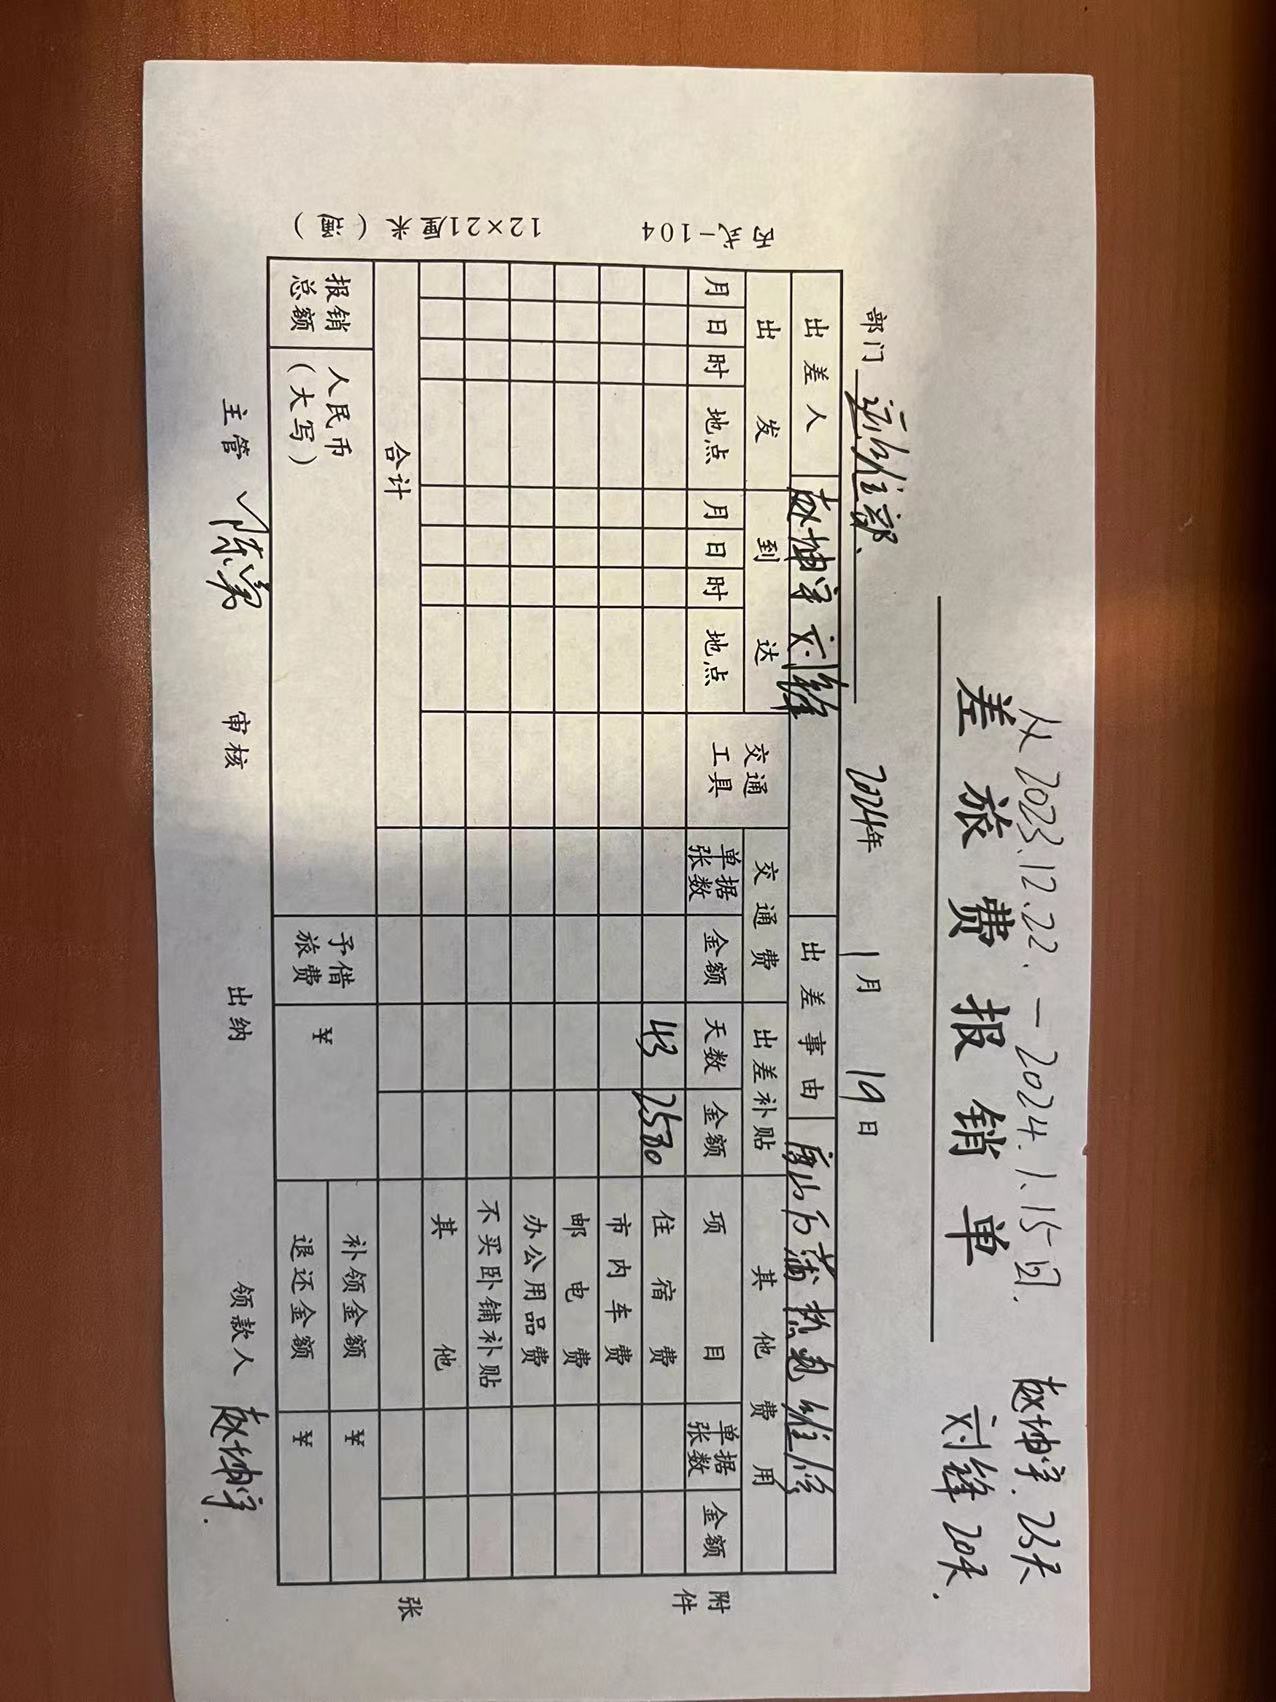 从2023.12.22.—2024.1.15日. 赵坤宇.23天
刘锋20天.
差旅费报销单
部门 运维部. 2024年 1月 19日
出差人 赵坤宇 刘锋 出差事由 维修
出发 到达 交通工具 交通费 出差补贴 其他费用
月 日 时 地点 月 日 时 地点 单据张数 金额 天数 金额 项目 单据张数 金额
43 2580 住宿费
市内车费
邮电费
办公用品费
不买卧铺补贴
其他
合计
报销总额 人民币(大写) 予借旅费 ¥ 补领金额 ¥
退还金额 ¥
主管 审核 出纳 领款人 赵坤宇.
附件 张
丙式-104 12×21厘米